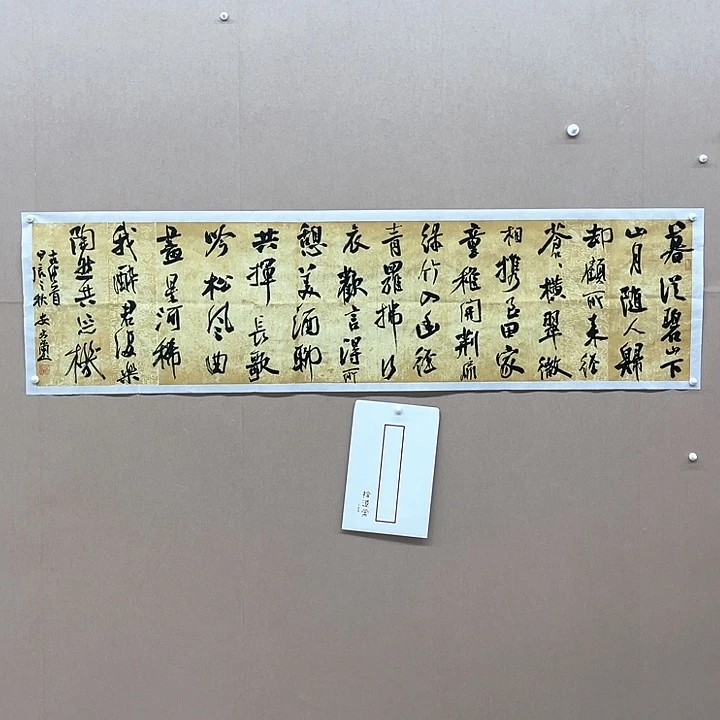 暮從碧山下
山月隨人歸
却顧所来徑
蒼々橫翠微
相携及田家
童稚開荆扉
綠竹入幽徑
青羅拂行
衣歡言得所
憩美酒聊
共揮長歌
吟松風曲
盡星河稀
我醉君復樂
陶然共忘機
甲辰之秋